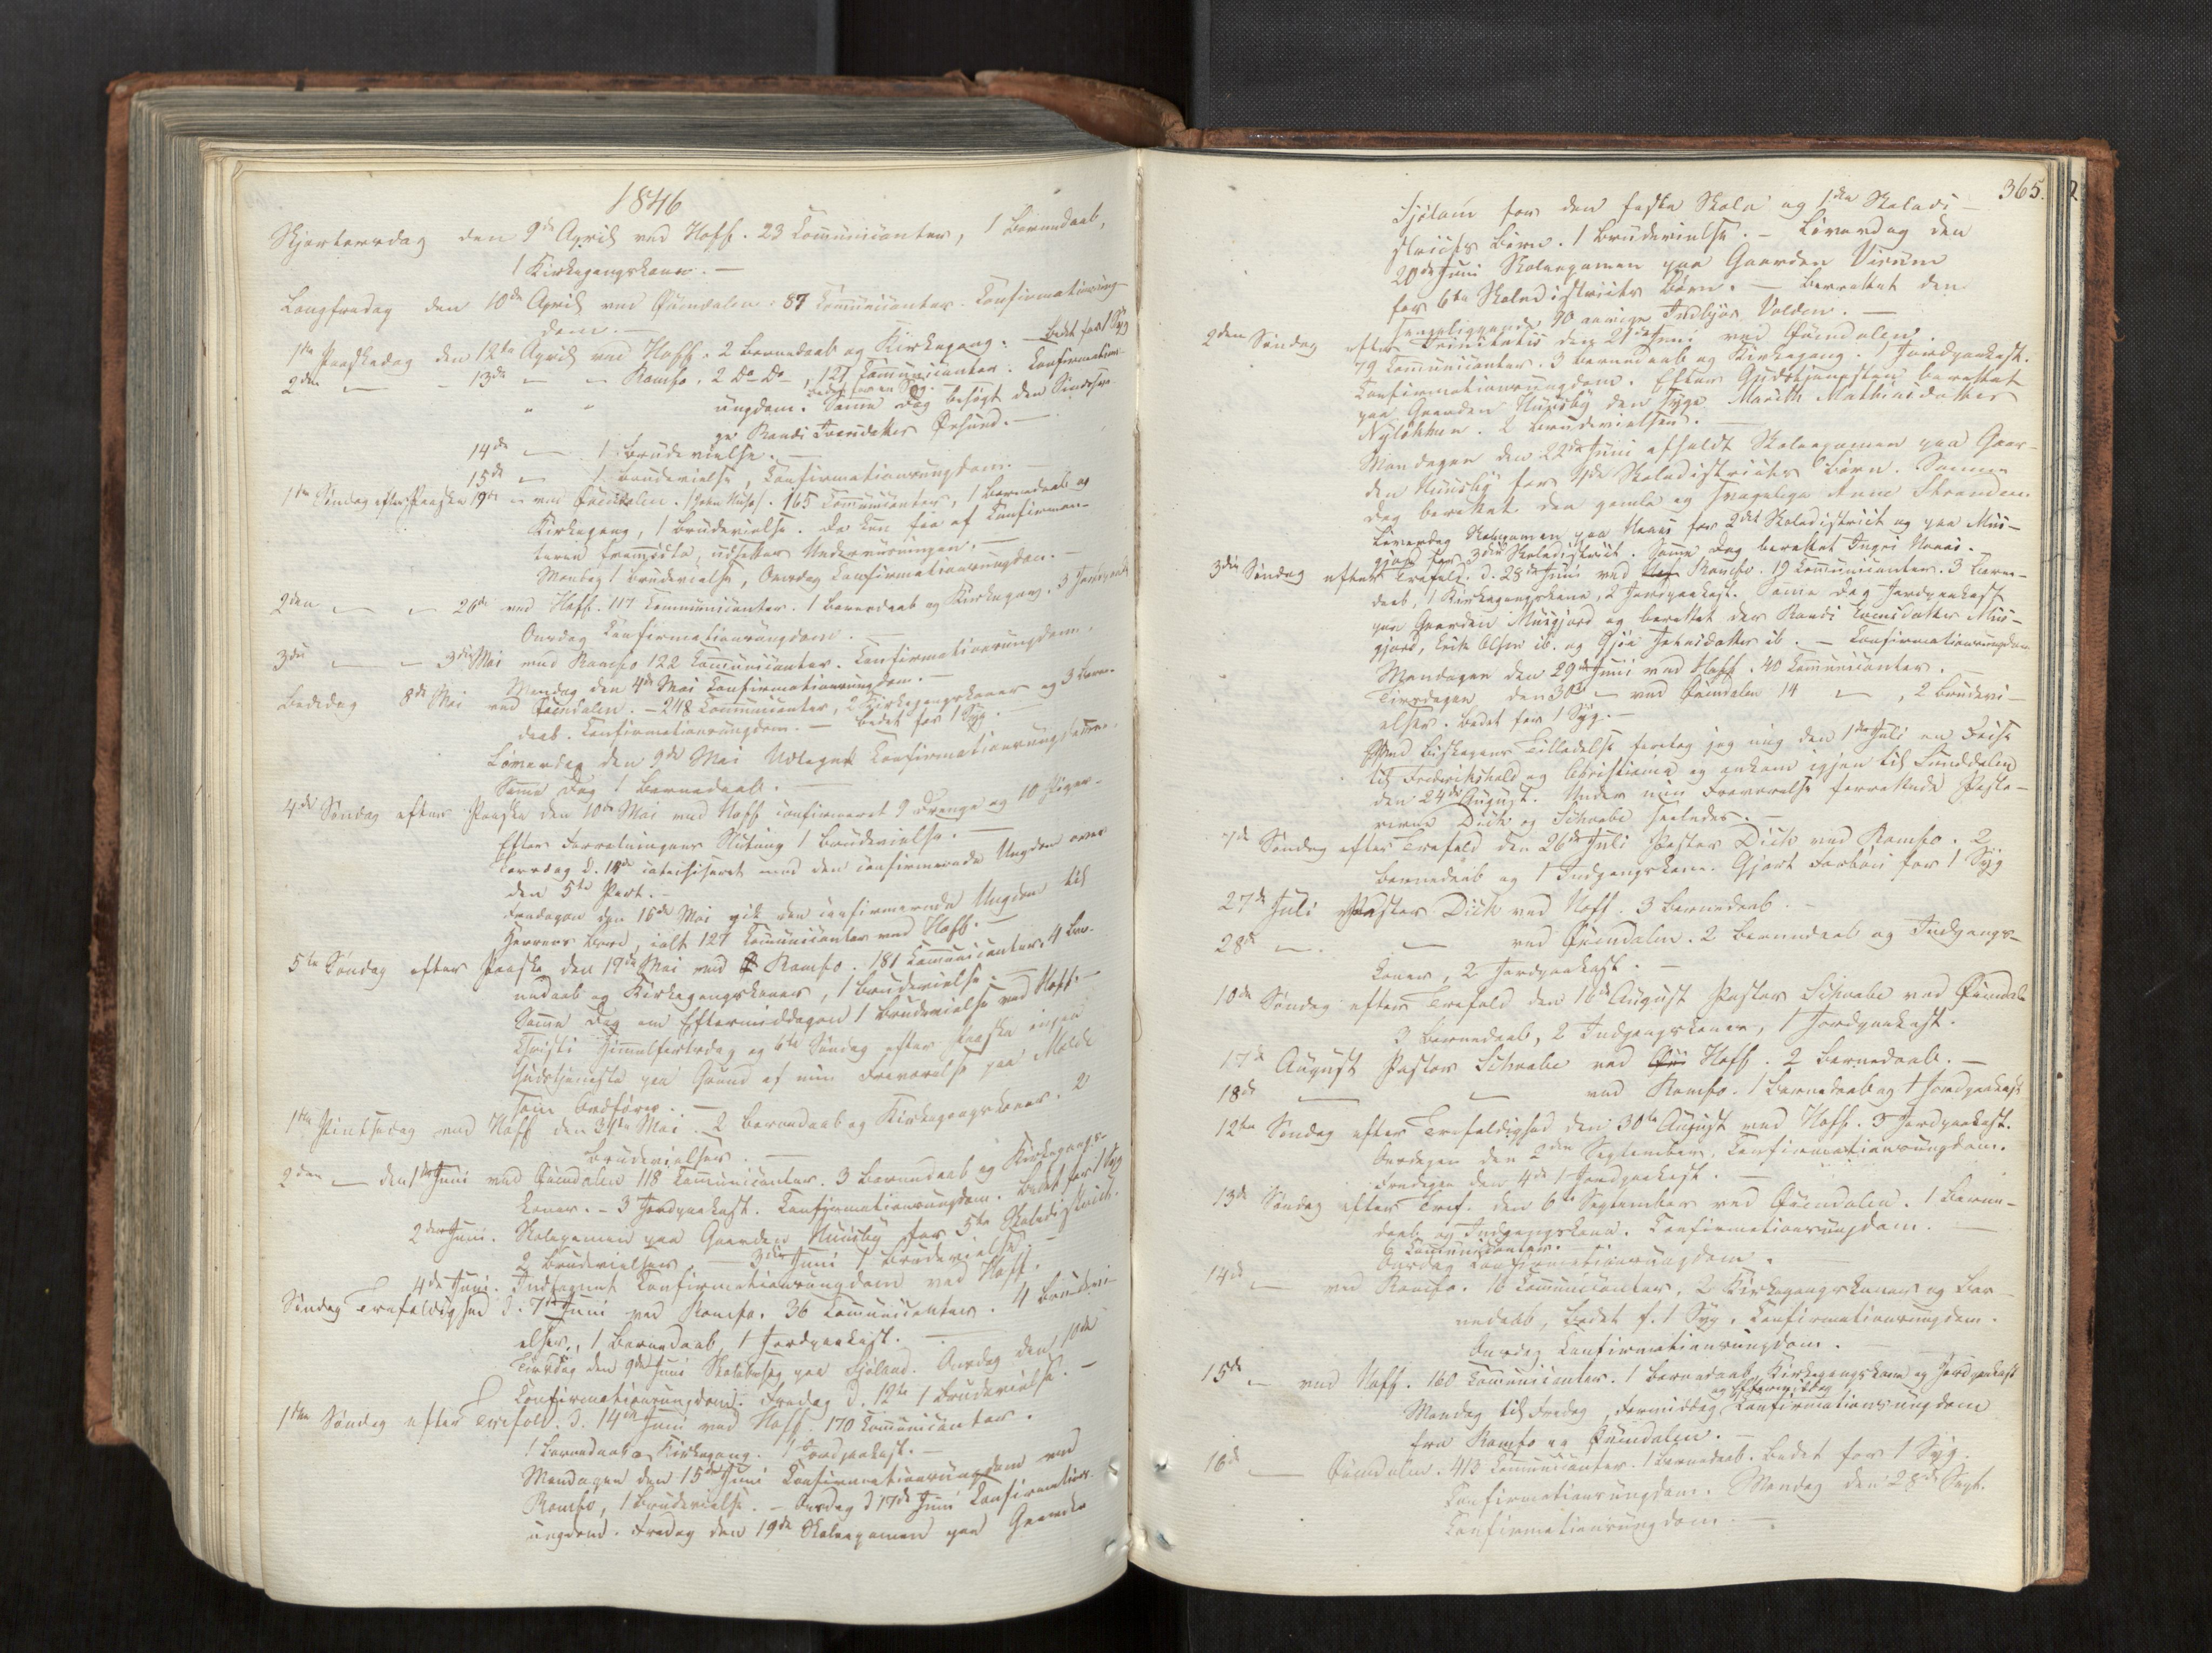 1846
Skjærtorsdag den 9de April ved Hoff. 23 Communicanter, 1 Barnedaab,
1 Kirkegangskone. —
Langfredag den 10de April ved Øxendalen. 87 Communicanter. Confirmationsung-
dom. —
1ste Paaskedag den 12te April ved Hoff. 2 Barnedaab og Kirkegang. Bedet for 1 Syg
2den — - 13de — — Romfo. 2 Do Do —, 121 Communicanter. Confirmations-
Bedet for en Syg. —
ungdom. Samme Dag besøgt den
Randi Iversdatter
14de — 1 Brudevielse. —
15de — 1 Brudevielse, Confirmationsungdom. —
1ste Søndag efter Paaske 19de — ved Øxendalen. 165 Communicanter, 1 Barnedaab og
Kirkegang, 1 Brudevielse. Da kun faa af Confirman-
terne fremmødte, udsattes Underviisningen. —
Mandag 1 Brudevielse, Onsdag Confirmationsungdom. —
2den — — 26de ved Hoff. 117 Communicanter. 1 Barnedaab og Kirkegang. 3 Jordpaak.
Onsdag Confirmationsungdom. —
3die — — 3die Mai ved Romfo 122 Communicanter. Confirmationsungdom.
Mandag den 4de Mai Confirmationsungdom. —
Bededag 8de Mai ved Øxendalen. — 248 Communicanter, 2 Kirkegangskoner og 3 Barne-
daab. Confirmationsungdom. — Bedet for 1 Syg.
Løverdag den 9de Mai Confirmationsungdommen.
Samme Dag 1 Barnedaab. —
4de Søndag efter Paaske den 10de Mai ved Hoff confirmeret 9 Drenge og 10 Piger.
Efter Forretningens Slutning 1 Brudevielse. —
Torsdag d. 14de catechiseret med den confirmerede Ungdom over
den 5te Part. —
Fredagen den 15de Mai gik den confirmerede Ungdom til
Herrens Bord, ialt 127 Communicanter ved Hoff. —
5te Søndag efter Paaske den 17de Mai ved Romfo. 181 Communicanter, 4 Bar-
nedaab og Kirkegangskoner, 1 Brudevielse. —
Samme Dag om Eftermiddagen 1 Brudevielse ved Hoff. —
Christi Himmelfartsdag og 6te Søndag efter Paaske ingen
Gudstjeneste paa Grund af min Fraværelse paa Molde
som Ordfører. —
1ste Pintsedag ved Hoff den 31te Mai. 2 Barnedaab og Kirkegangskoner. 2
Brudevielser. —
2den — den 1ste Juni ved Øxendalen 118 Communicanter. 3 Barnedaab og Kirkegangs-
koner. — 3 Jordpaakast. Confirmationsungdom. Bedet for 1 Syg
2den Juni. Skoleexamen paa Gaarden Huusby for 5te Skoledistrict.
2 Brudevielser — 3die Juni 1 Brudevielse. —
4de Juni. Confirmationsungdom ved Hoff.
Søndag Trefoldighed d. 7de Juni ved Romfo. 36 Communicanter. 4 Brudevi-
elser, 1 Barnedaab, 1 Jordpaakast. —
Tirsdag den 9de Juni paa Fjøland. Onsdag den 10de
Confirmationsungdom. Fredag d. 12te 1 Brudevielse. —
1ste Søndag efter Trefold. d. 14de Juni ved Hoff 170 Communicanter.
1 Barnedaab og Kirkegang. 1 Jordpaakast. —
Mandagen den 15de Juni Confirmationsungdom ved
Romfo, 1 Brudevielse. — Onsdag d 17de Juni Confirmations-
ungdom. Fredag den 19de Skoleexamen paa Gaarden
365.
for den faste Skole og 1ste Skoledi-
stricts Børn. 1 Brudevielse. — Løverdag den
20de Juni Skoleexamen paa Gaarden Virum
for 6te Skoledistricts Børn. — Berettet den
sengeliggende, 90 aarige Indbjør Volden. —
2den Søndag efter Trinitatis den 21de Juni ved Øxendalen.
79 Communicanter. 3 Barnedaab og Kirkegang. 1 Jordpaakast.
Confirmationsungdom. Efter Gudstjenesten berettet
paa Gaarden Huusby den syge Marith Mathiasdatter
Nyløkken. 2 Brudevielser. —
Mandagen den 22de Juni afholdt Skoleexamen paa Gaar-
den Huusby for 4de Skoledistricts Børn. Samme
Dag berettet den gamle og svagelige Anne Stranden.
Løverdag Skoleexamen paa Horås for 2det Skoledistrict og paa Mus-
gjerd for 3die Skoledistrict. Samme Dag berettet Ingri Horås. —
3die Søndag efter Trefold. d. 28de Juni ved Hof Romfo. 19 Communicanter. 3 Barne-
daab, 1 Kirkegangskone, 2 Jordpaakast. Samme Dag Jordpaakast
paa Gaarden Musgjerd og berettet der Randi Larsdatter Mus-
gjerd, Erik Olsen ib. og Gjøri Johnsdatter ib. — Confirmationsungdom
Mandagen den 29de Juni ved Hoff. 40 Communicanter. —
Tirsdagen den 30te — ved Øxendalen 14 —, 2 Brudevi-
elser. Bedet for 1 Syg. —
Med Biskopens Tilladelse foretog jeg mig den 1ste Juli en Reise
til Frederikshald og Christiania og ankom igjen til Sunddalen
den 24de August. Under min Fraværelse forrettede Pasto-
rerne Dick og Schwabe saaledes. —
7de Søndag efter Trefold den 26de Juli Pastor Dick ved Romfo. 2
Barnedaab og 1 Indgangskone. Gjort Forbøn for 1 Syg
27de Juli Pastor Dick ved Hoff. 3 Barnedaab. —
28de — — ved Øxendalen. 2 Barnedaab og Indgangs-
koner, 2 Jordpaakast. —
10de Søndag efter Trefold den 16de August Pastor Schwabe ved Øxendale
3 Barnedaab, 2 Indgangskoner, 1 Jordpaakast.
17de August Pastor Schwabe ved Hoff. 2 Barnedaab. —
18de — — ved Romfo. 1 Barnedaab og 1 Jordpaakast
12te Søndag efter Trefoldighed den 30te August ved Hoff. 3 Jordpaakast.
Onsdagen den 2den September. Confirmationsungdom.
Fredagen den 4de 1 Jordpaakast. —
13de Søndag efter Tref. den 6te September ved Øxendalen. 1 Barne-
daab og Indgangskone. Confirmationsungdom. —
6 Communicanter.
Onsdag Confirmationsungdom. —
14de — ved Romfo. 16 Communicanter, 2 Kirkegangskoner og Bar-
nedaab, Bedet f. 1 Syg. Confirmationsungdom.
Onsdag Confirmationsungdom. —
15de — ved Hoff. 160 Communicanter. 1 Barnedaab, Kirkegangskone og Jordpaakast
og Eftermiddag
Mandag til Fredag, Formiddag Confirmationsungdom
fra Romfo og Øxendalen. —
16de — Øxendalen. 413 Communicanter. 1 Barnedaab. Bedet for 1 Syg.
Confirmationsungdom. Mandag den 28de Sept.
Confirmationsungdom. —